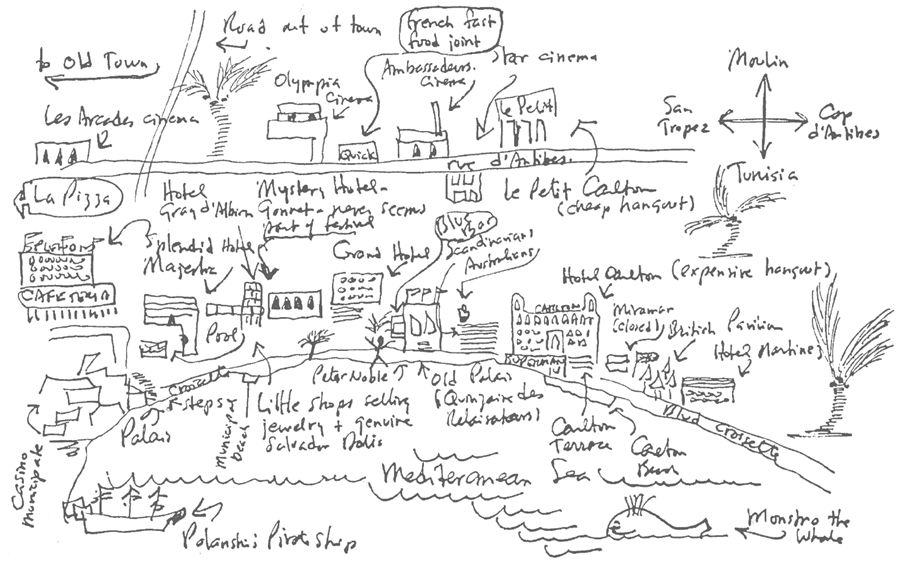 Road out of town
French fast
food joint
to Old Town
Ambassadeurs
Cinema
Star cinema
Moulin
Olympia
Cinema
le Petit
San
Tropez
Cap
d'Antibes
Les Arcades cinema
Quick
rue d'Antibes
Tunisia
La Pizza
Hotel
Gray d'Albion
Mystery Hotel-
Gonnet - never seems
part of festival
le Petit Carlton
(cheap hangout)
Blue
Bar
Splendid Hotel
Majestic
Grand Hotel
Scandinavians
Australians
Hotel Carlton (expensive hangout)
CAFETERIA
CARLTON
Miramar
(closed)
British Pavilion
Hotel Martinez
Pool
Croisette
Peter Noble
Old Palais
(Quinzaine des
Realisateurs)
Blvd Croisette
steps
Palais
Municipal
beach
Little shops selling
jewelry + genuine
Salvador Dalis
Carlton
Terrace
Carlton
Beach
Casino
Municipale
Mediterranean
Sea
Polanski's Pirate ship
Monstro the
Whale